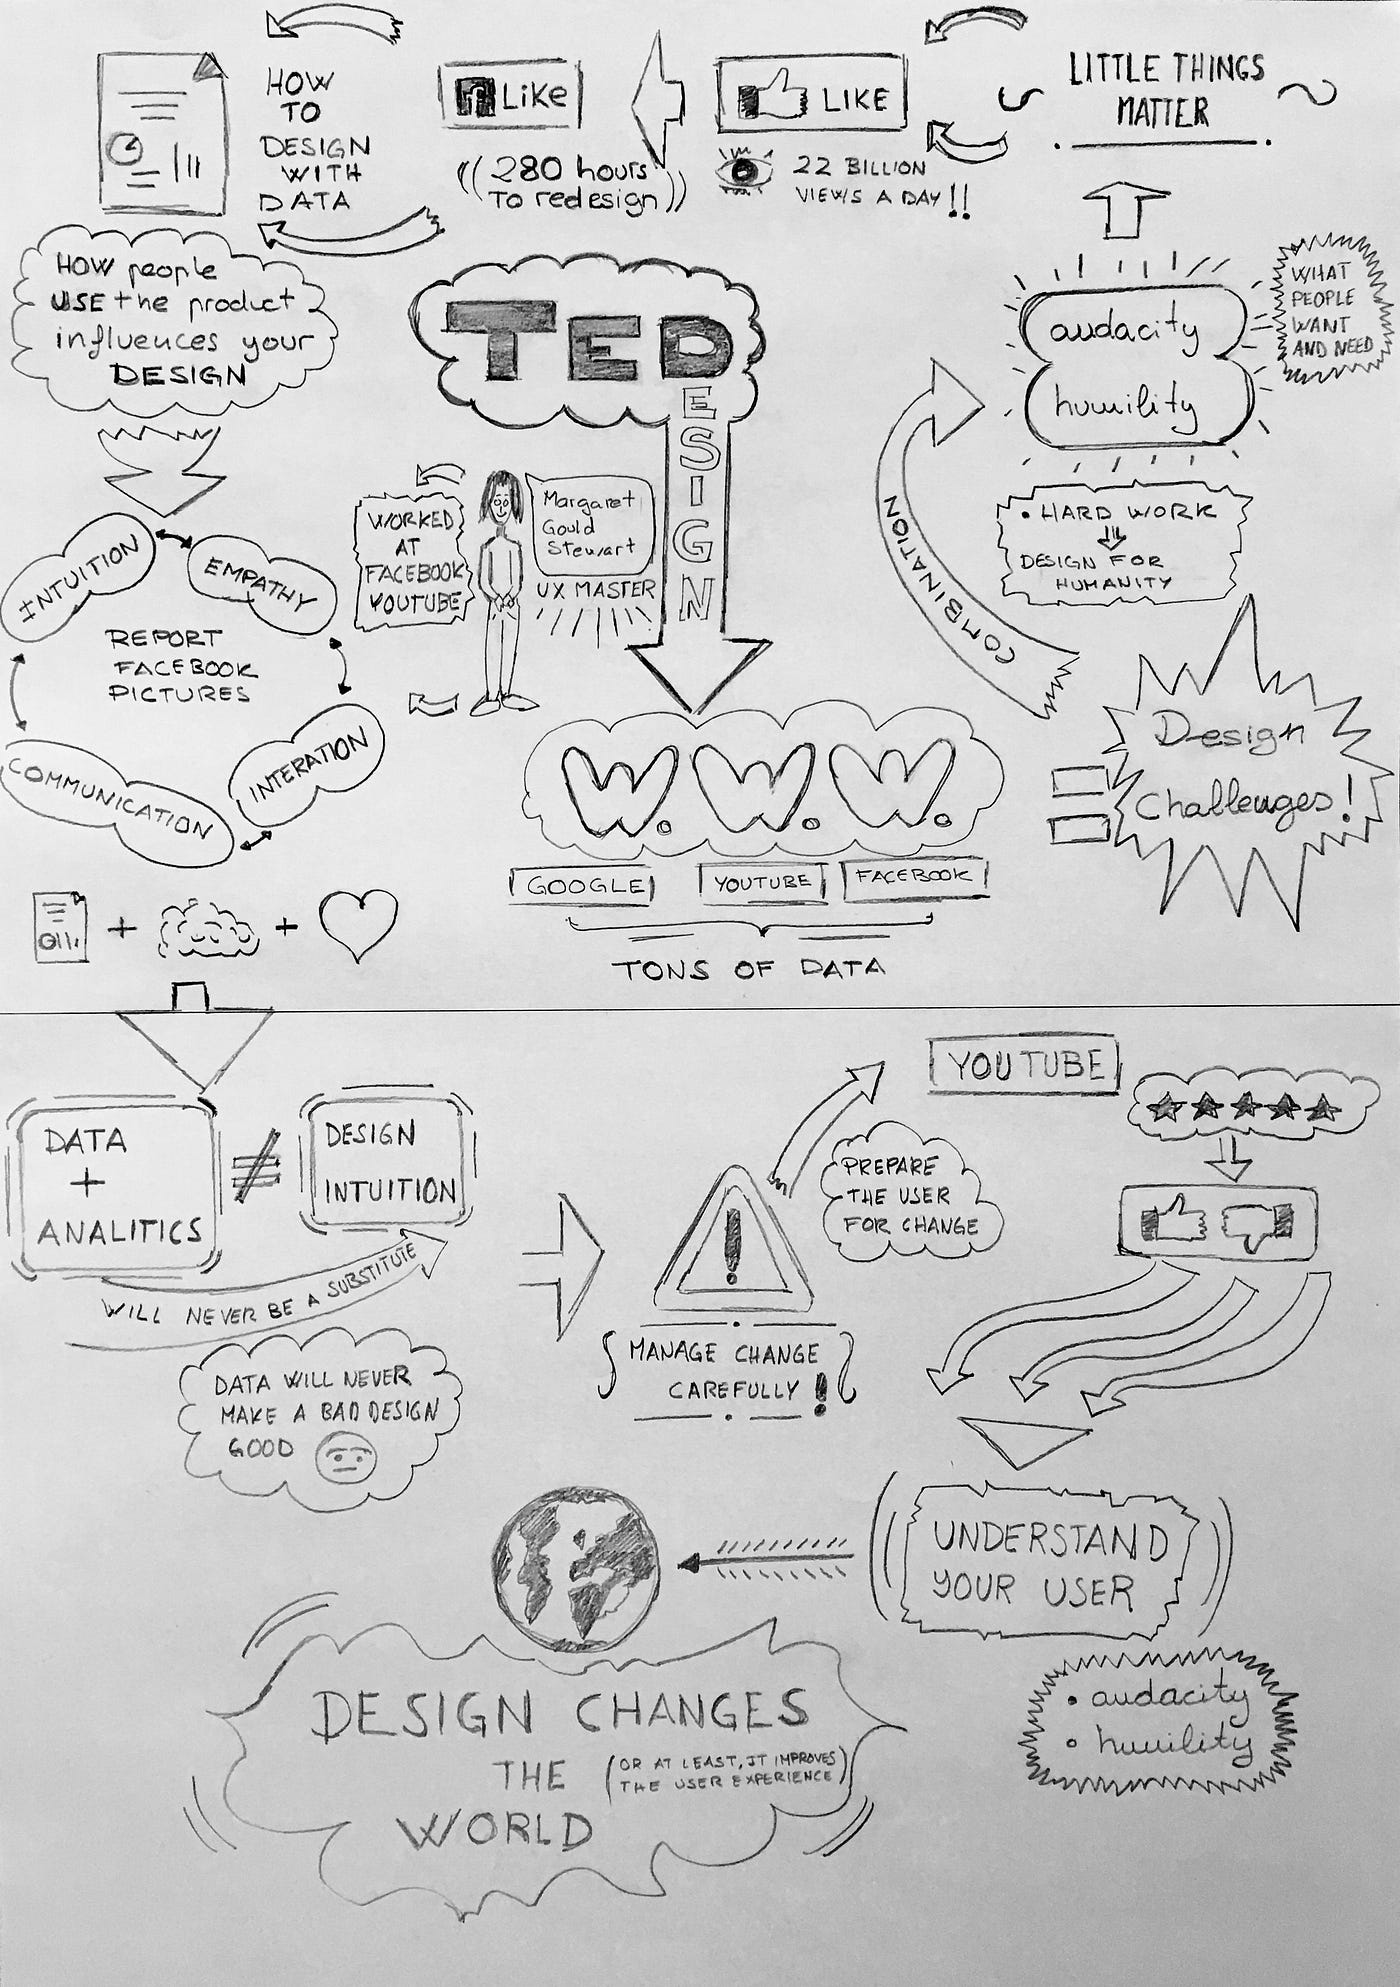 TED
DESIGN
Margaret
Gould
Stewart
UX MASTER
WORKED
AT
FACEBOOK
YOUTUBE
W. W. W.
GOOGLE
YOUTUBE
FACEBOOK
TONS OF DATA
Design
Challenges!
COMBINATION
audacity
humility
WHAT
PEOPLE
WANT
AND NEED
• HARD WORK
DESIGN FOR
HUMANITY
LITTLE THINGS
MATTER
LIKE
22 BILLION
VIEWS A DAY!!
f Like
((280 hours
To redesign))
HOW
TO
DESIGN
WITH
DATA
HOW people
USE the product
influences your
DESIGN
INTUITION
EMPATHY
REPORT
FACEBOOK
PICTURES
INTERATION
COMMUNICATION
+ +
DATA
+
ANALITICS
≠
DESIGN
INTUITION
WILL NEVER BE A SUBSTITUTE
DATA WILL NEVER
MAKE A BAD DESIGN
GOOD
!
MANAGE CHANGE
CAREFULLY!
PREPARE
THE USER
FOR CHANGE
YOUTUBE
UNDERSTAND
YOUR USER
• audacity
• humility
DESIGN CHANGES
THE (OR AT LEAST, IT IMPROVES
THE USER EXPERIENCE)
WORLD